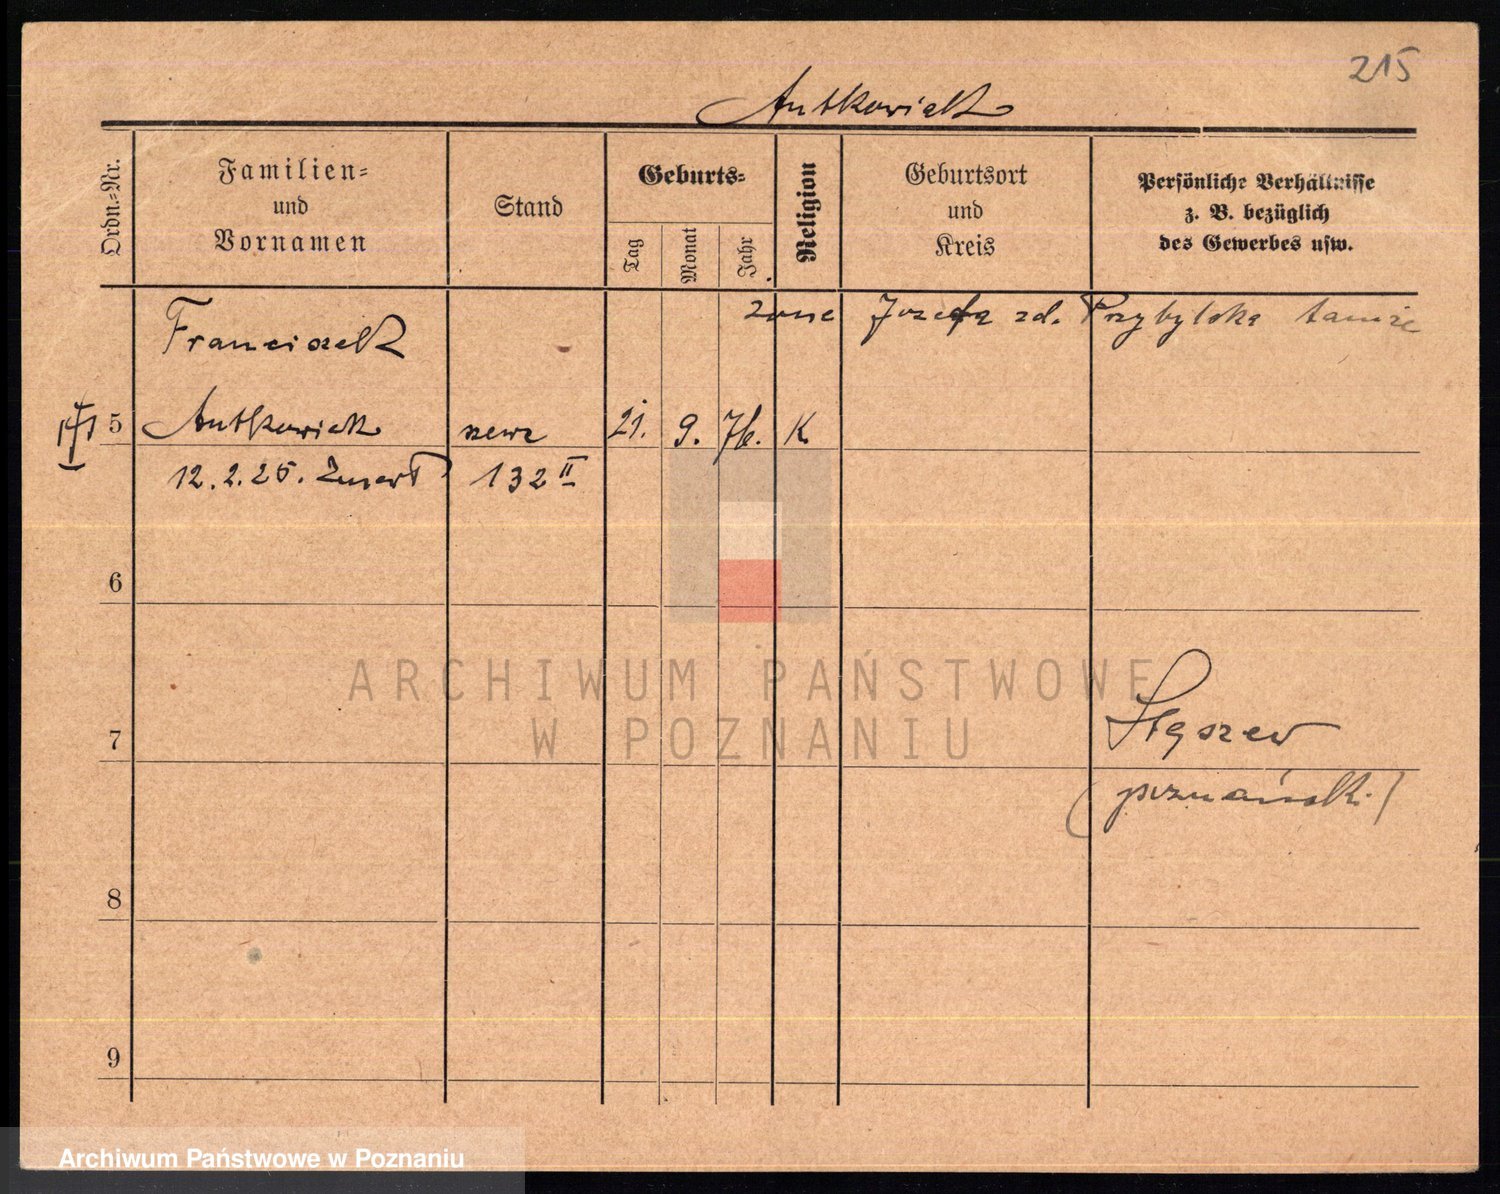 215
Antkowiak
Ordn.-Nr.
Familien-
und
Vornamen
Stand
Geburts-
Tag
Monat
Jahr
Religion
Geburtsort
und
Kreis
Persönliche Verhältnisse
z. B. bezüglich
des Gewerbes usw.
Franciszek
żona Józefa zd. Przybylska tamże
5 Antkowiak szewc 21. 9. 76. K
12.2.25. Zmarł 132 II
6
Stęszew
7
(poznański)
8
9
ARCHIWUM PAŃSTWOWE
W POZNANIU
Archiwum Państwowe w Poznaniu